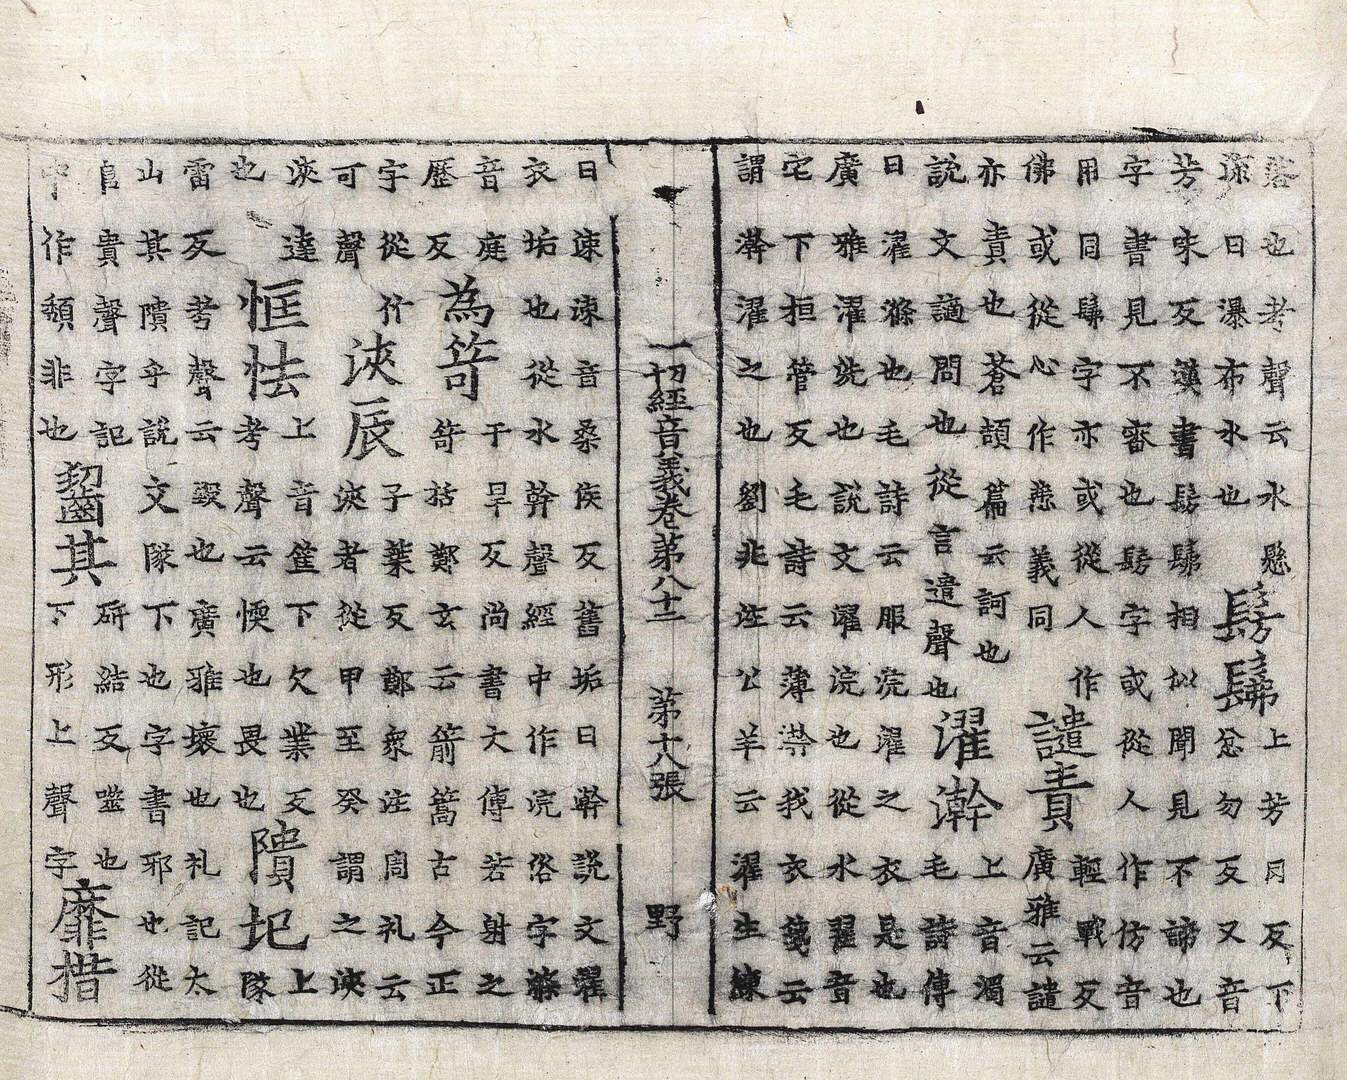 落也考聲云水懸
流曰瀑布水也
髣髴
上芳罔反下
忿勿反又音
芳味反漢書髣髴相似聞見不諦也
字書見不審也髣字或從人作仿音
用同髴字亦或從人作
佛或從心作㤵義同
譴責
輕戰反
廣雅云譴
亦責也蒼頡篇云訶也
說文謫問也從言遣聲也
濯澣
上音濁
毛詩傳
曰濯滌也毛詩云服浣濯之衣是也
廣雅濯洗也說文濯浣也從水翟音
宅下桓管反毛詩云薄澣我衣箋云
謂澣濯之也劉兆注公羊云濯生練
一切經音義卷第八十二 第十八張 野
曰涑涑音桑侯反舊垢曰澣說文濯
衣垢也從水幹聲經中作浣俗字滌
音庭
歷反
為笴
干旱反尚書大傳若射之
笴括鄭玄云箭篙古今正
字從竹
可聲
浹辰
子葉反鄭衆注周礼云
浹者從甲至癸謂之浹
浹達
也
恇怯
上音筐下欠業反
考聲云愞也畏也
隤圮
上
隊
雷反考聲云毀也廣雅壞也礼記太
山其隤乎說文隊下也字書邪也從
𨸏貴聲字記
中作頺非也
齧其
研結反噬也
下形上聲字
靡措